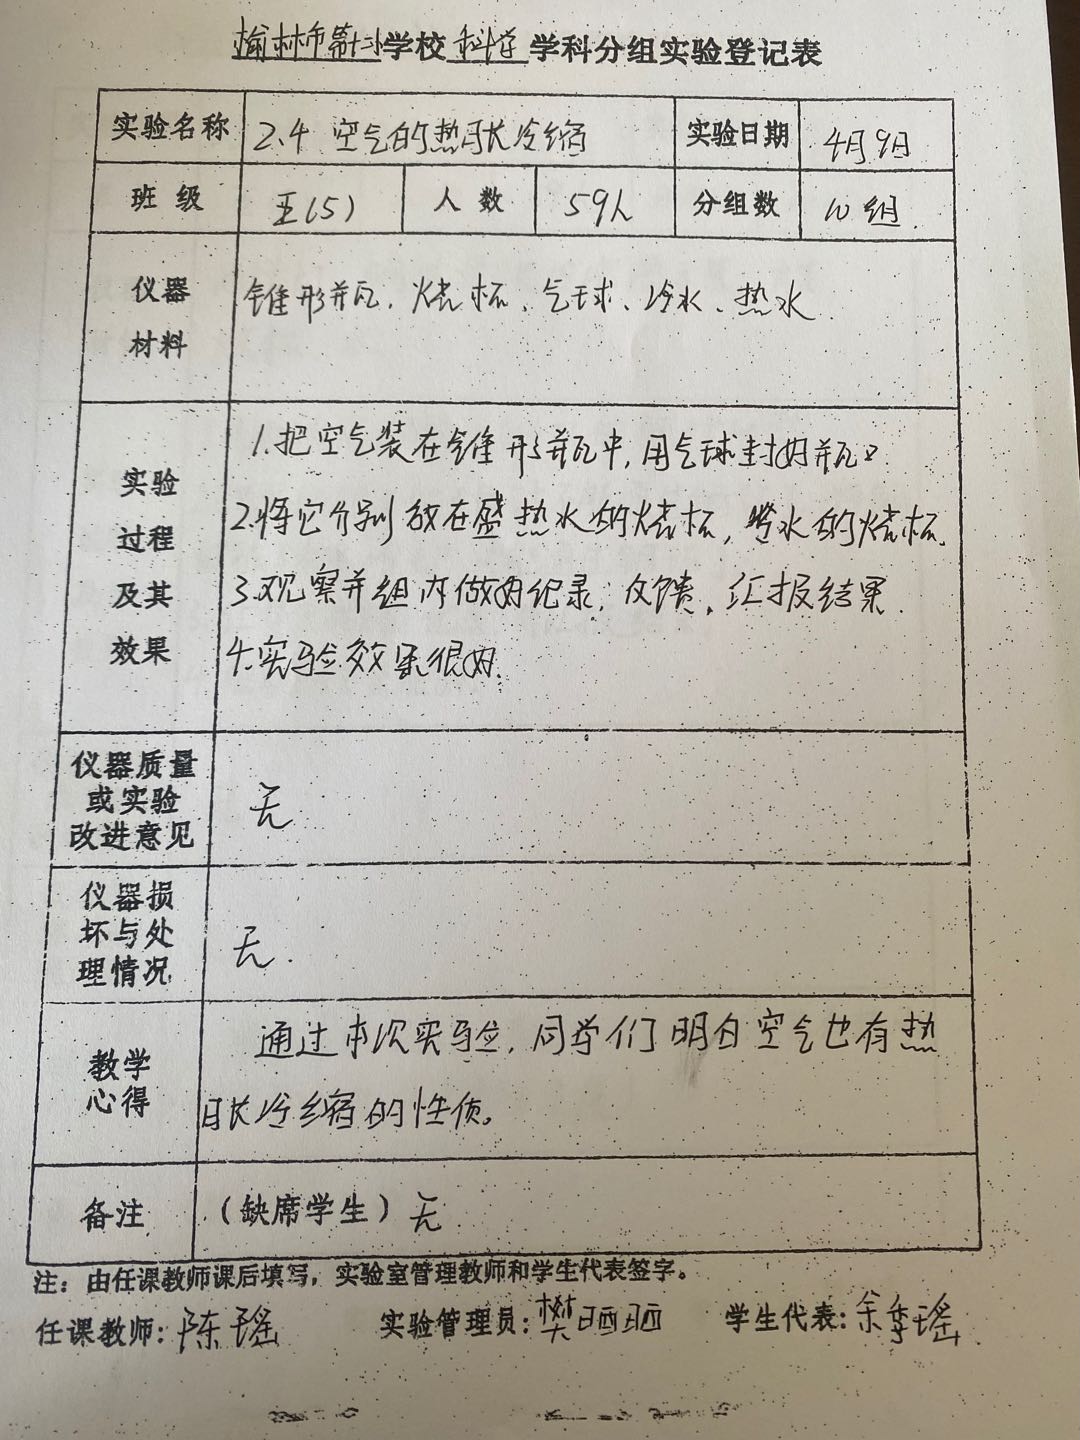 榆林市第十二小学校 科学 学科分组实验登记表
实验名称 2.4 空气的热胀冷缩 实验日期 4月9日
班级 五(5) 人数 59人 分组数 10组.
仪器
材料
锥形瓶、烧杯、气球、冷水、热水
实验
过程
及其
效果
1.把空气装在锥形瓶中,用气球封好瓶口
2.将它分别放在盛热水的烧杯,冷水的烧杯.
3.观察并组内做好纪录,反馈、汇报结果.
4.实验效果很好.
仪器质量
或实验
改进意见
无
仪器损
坏与处
理情况
无.
教学
心得
通过本次实验,同学们明白空气也有热
胀冷缩的性质。
备注 (缺席学生) 无
注:由任课教师课后填写,实验室管理教师和学生代表签字。
任课教师:陈瑶 实验管理员:樊 学生代表:余季瑶